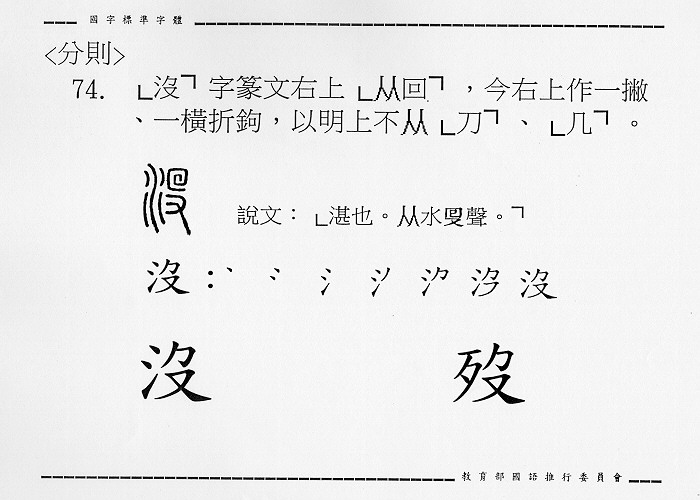 國字標準字體
<分則>
74. 「沒」字篆文右上「从回」，今右上作一撇
、一橫折鉤，以明上不从「刀」、「几」。
說文：「湛也。从水𠬸聲。」
沒：丶 冫 氵 沒
沒 歿
教育部國語推行委員會